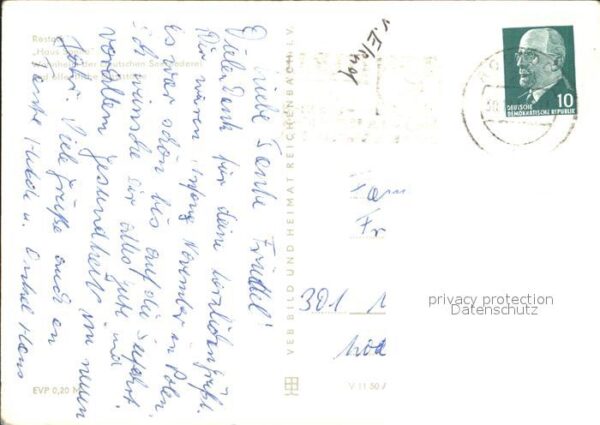 Rostock
"Haus Sonne"
der deutschen Seereederei
Liebe Tante Friedel!
Vielen Dank für deine herzlichen Grüße.
Wir waren Anfang November in Polen
es war schön bis auf die Seefahrt.
ich wünsche Dir alles Gute und
vorallem Gesundheit im neuen
Jahr. Viele Grüße auch an
Tante Hilde u. Onkel Hans
EVP 0,20
VEB BILD UND HEIMAT REICHENBACH i. V.
V 11 50
10
DEUTSCHE
DEMOKRATISCHE REPUBLIK
Fam
Fr
301
privacy protection
Datenschutz